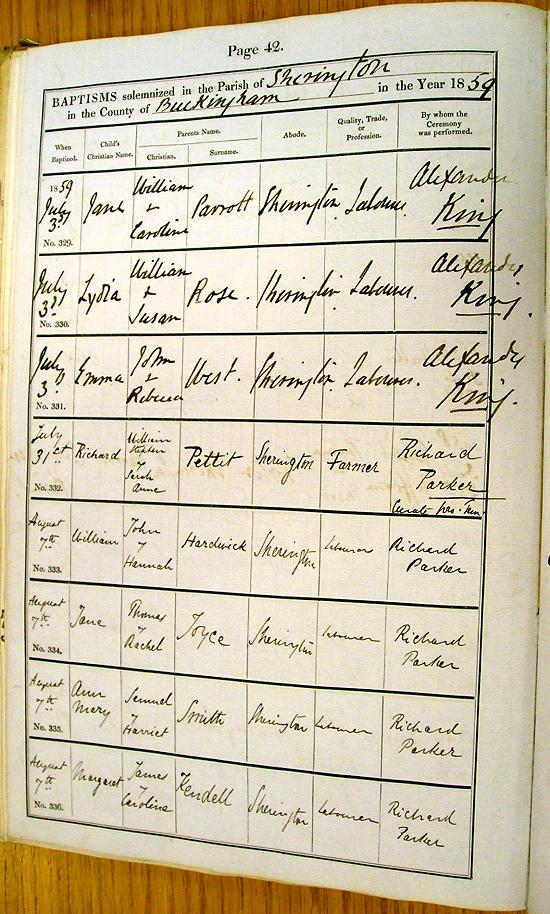 Page 42.
BAPTISMS solemnized in the Parish of Sherington
in the County of Buckingham in the Year 1859
When Baptized. Child's Christian Name. Parents Name. Abode. Quality, Trade, or Profession. By whom the Ceremony was performed.
Christian. Surname.
1859 July 3d Jane William & Caroline Parrott Sherington Labourer. Alexander King
No. 329.
July 3d Lydia William & Susan Rose. Sherington Labourer. Alexander King.
No. 330.
July 3. Emma John & Rebecca West. Sherington Labourer. Alexander King.
No. 331.
July 31st Richard William Stephen & Sarah Anne Pettit Sherington Farmer Richard Parker Curate pro. tem.
No. 332.
August 7th William John & Hannah Hardwick Sherington Labourer Richard Parker
No. 333.
August 7th Jane Thomas & Rachel Joyce Sherington Labourer Richard Parker
No. 334.
August 7th Ann Mary Samuel & Harriet Smith Sherington Labourer Richard Parker
No. 335.
August 7th Margaret James & Caroline Kendell Sherington Labourer Richard Parker
No. 336.